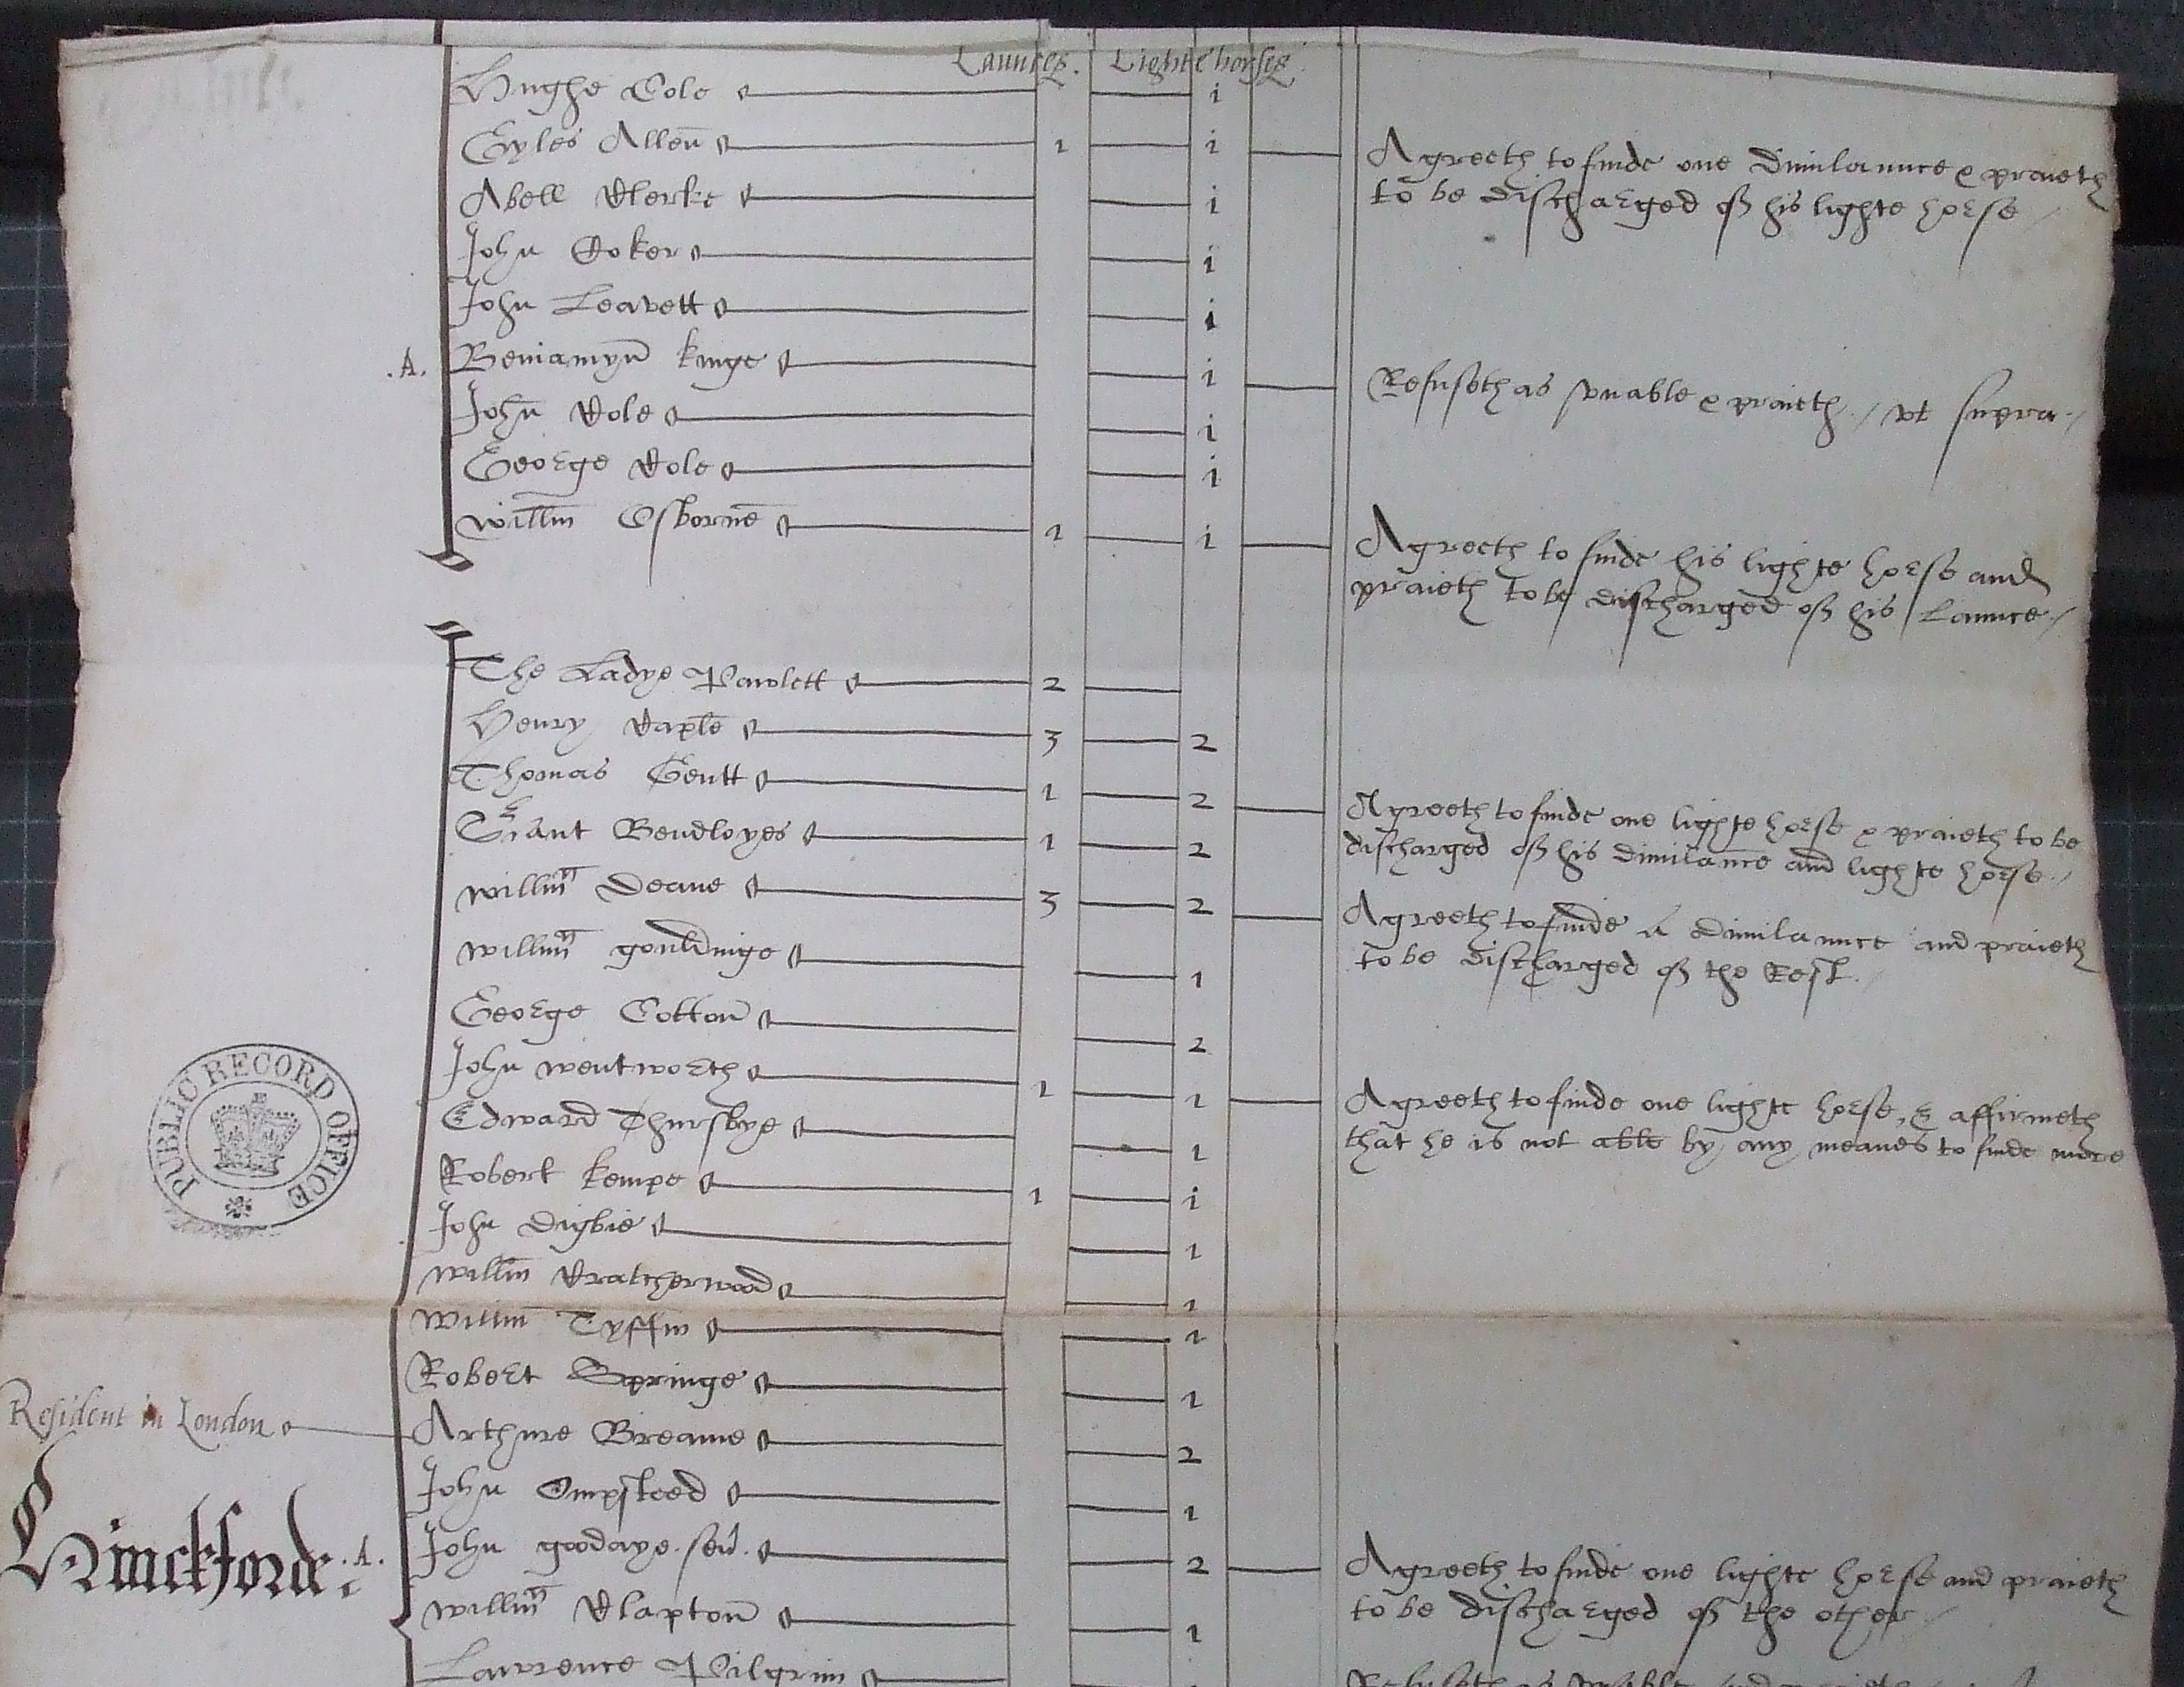 Launces. Lighte horses
Hughe Cole i
Gyles Allen 1 i Agreeth to finde one dimilaunce & praieth
to be dischärged of his lighte horse
Abell Clerke i
John Coker i
John Leavett i
.A. Beniamyn kinge i Refuseth as vnable & praieth / vt supra /
John Cole i
George Cole i
Willm Osborne 1 i Agreeth to finde his lighte horse and
praieth to be discharged of his Launce /
The Ladye Pawlett 2
Henry Caple 3 2
Thomas Gentt 1 2 Agreeth to finde one lighte horse & praieth to be
discharged of his dimilance and lighte horse /
Grant Bendloyes 1 2
Willm Deane 3 2 Agreeth to finde a dimilaunce and praieth
to be discharged of the Rest /
Willm gouldinge 1
George Cotton 2
John wentworth 1 1 Agreeth to finde one lighte horse, & affirmeth
that he is not able by any meanes to finde more
Edward Thursbye 1
Robert kempe 1 i
John digbie 1
Willm Cratcherwood 1
Willm Tyffin 1
Robert Springe 1
Resident in London Arthure Breame 2
John Ompsteed 1
Hinckforde .A. John goodaye. sen. 2 Agreeth to finde one lighte horse and praieth
to be discharged of the other /
Willm Clapton 1
Lawrence Pilgrim Refuseth as vnable
PUBLIC RECORD OFFICE